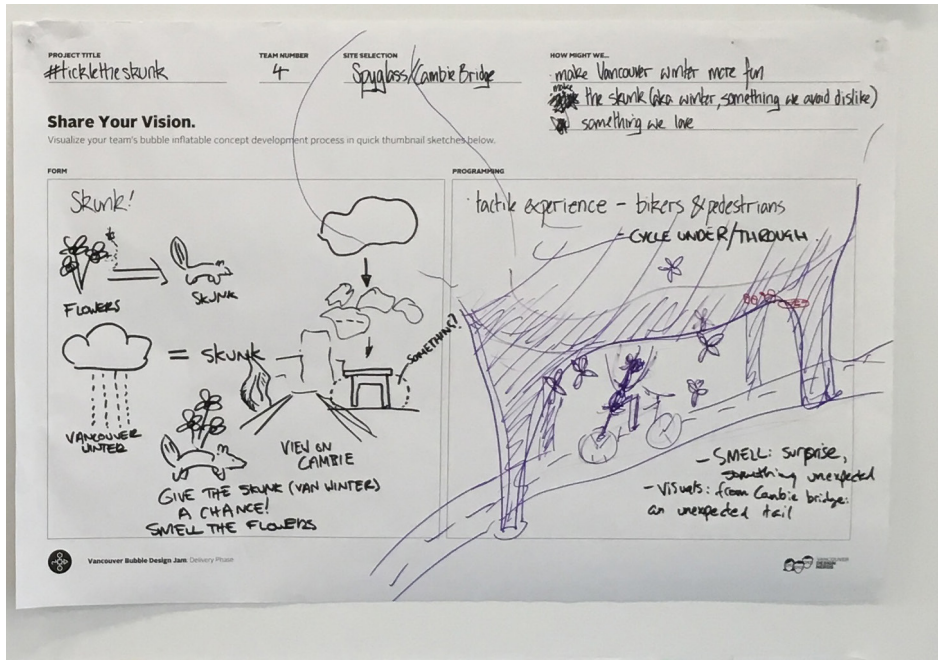 PROJECT TITLE
#tickletheskunk
TEAM NUMBER
4
SITE SELECTION
Spyglass/Cambie Bridge
HOW MIGHT WE...
· make Vancouver winter more fun
make the skunk (aka winter, something we avoid dislike)
something we love
Share Your Vision.
Visualize your team's bubble inflatable concept development process in quick thumbnail sketches below.
FORM
Skunk!
FLOWERS
SKUNK
= SKUNK
VANCOUVER
WINTER
SOMETHING?
VIEW ON
CAMBIE
GIVE THE SKUNK (VAN WINTER)
A CHANCE!
SMELL THE FLOWERS
PROGRAMMING
· tactile experience - bikers & pedestrians
- CYCLE UNDER/THROUGH
- SMELL: surprise,
something unexpected
- Visuals: from Cambie bridge:
an unexpected tail
Vancouver Bubble Design Jam Delivery Phase